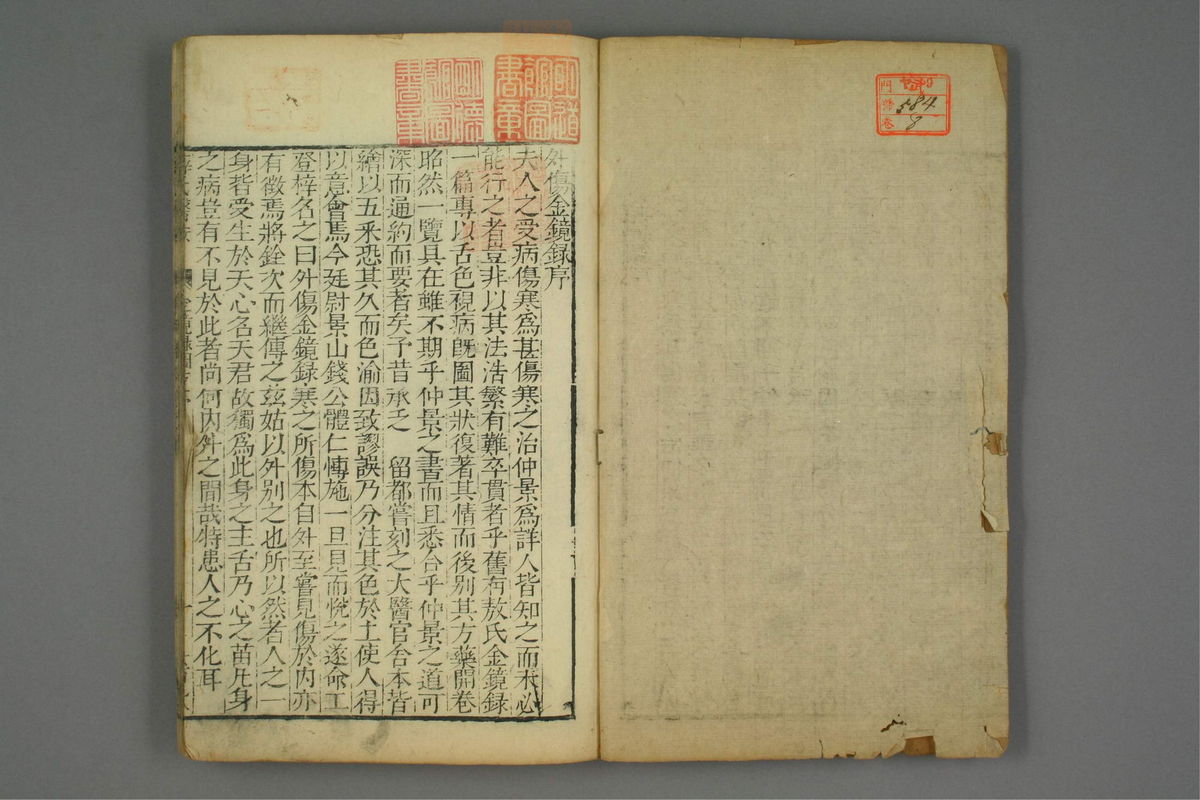 584
8
外傷金鏡錄序
夫人之受病傷寒爲甚傷寒之治仲景爲詳人皆知之而未必
能行之者豈非以其法浩繁有難卒貫者乎舊有敖氏金鏡錄
一篇專以舌色視病旣圖其狀復著其情而後別其方藥開卷
昭然一覽具在雖不期乎仲景之書而且悉合乎仲景之道可
深而通約而要者矣予昔承乏 留都嘗刻之太醫官舍本皆
繪以五釆恐其久而色渝因致謬誤乃分注其色於上使人得
以意會焉今廷尉景山錢公體仁博施一旦見而悅之遂命工
登梓名之曰外傷金鏡錄寒之所傷本自外至嘗見傷於內亦
有徵焉將銓次而繼傳之玆姑以外別之也所以然者人之一
身皆受生於天心名天君故獨爲此身之主舌乃心之苗凡身
之病豈有不見於此者尚何內外之間哉特患人之不化耳